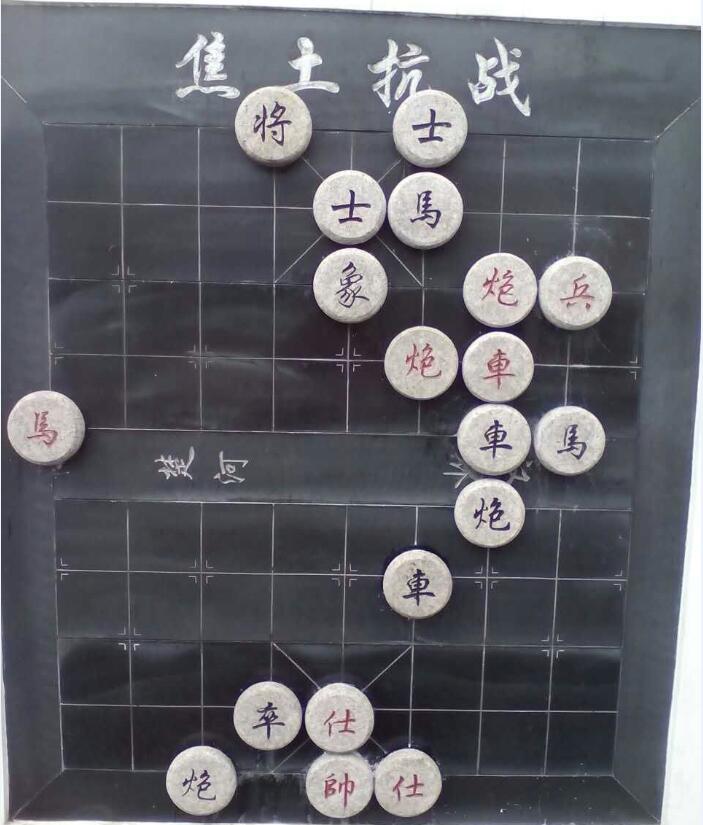 焦土抗战
将 士
士 馬
象 炮 兵
炮 車
馬 車 馬
楚河
炮
車
卒 仕
炮 帥 仕